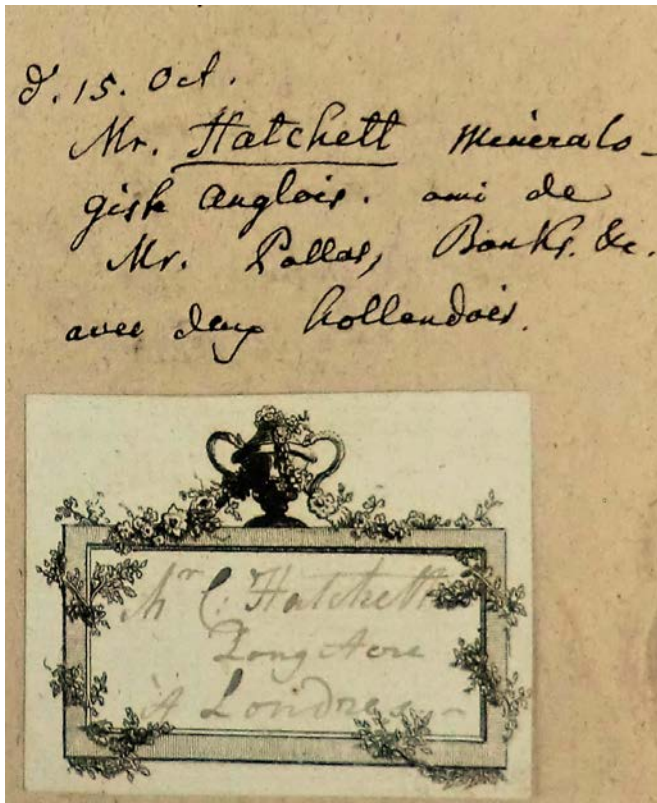 d. 15. Oct.
Mr. Hatchett minéralo-
giste anglois. ami de
Mr. Pallas, Banks. &c.
avec deux hollandois.
Mr C. Hatchett
Long Acre
à Londres